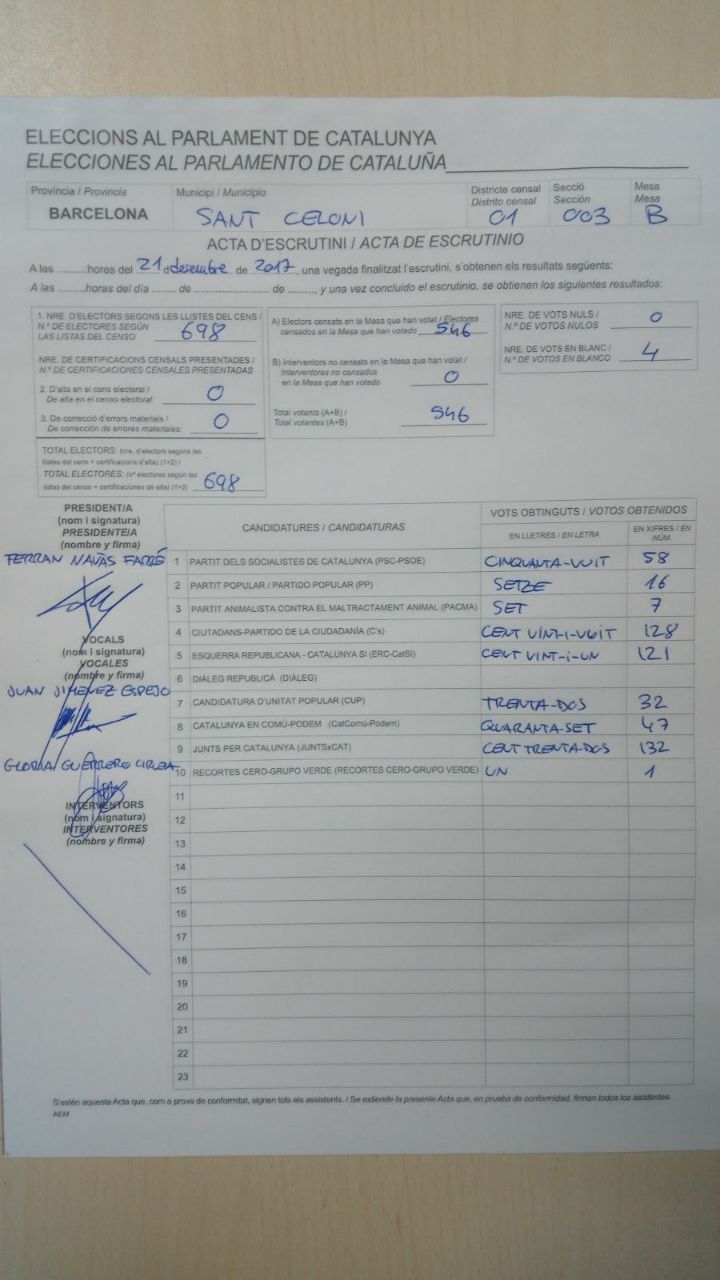 ELECCIONS AL PARLAMENT DE CATALUNYA
ELECCIONES AL PARLAMENTO DE CATALUÑA
Província / Provincia Municipi / Municipio Districte censal Secció Mesa
Distrito censal Sección Mesa
BARCELONA SANT CELONI 01 003 B
ACTA D'ESCRUTINI / ACTA DE ESCRUTINIO
A les ..........hores del 21 d desembre de 2017, una vegada finalitzat l'escrutini, s'obtenen els resultats següents:
A las ..........horas del día ........ de ........................ de ........., y una vez concluido el escrutinio, se obtienen los siguientes resultados:
1. NRE. D'ELECTORS SEGONS LES LLISTES DEL CENS /
N.º DE ELECTORES SEGÚN
LAS LISTAS DEL CENSO 698
NRE. DE CERTIFICACIONS CENSALS PRESENTADES /
N.º DE CERTIFICACIONES CENSALES PRESENTADAS
2. D'alta en el cens electoral /
De alta en el censo electoral: 0
3. De correcció d'errors materials /
De corrección de errores materiales: 0
TOTAL ELECTORS: (nre. d'electors segons les
llistes del cens + certificacions d'alta) (1+2) /
TOTAL ELECTORES: (nº electores según las
listas del censo + certificaciones de alta) (1+2) 698
A) Electors censats en la Mesa que han votat / Electores
censados en la Mesa que han votado 546
B) Interventors no censats en la Mesa que han votat /
Interventores no censados
en la Mesa que han votado 0
Total votants (A+B) /
Total votantes (A+B) 546
NRE. DE VOTS NULS /
N.º DE VOTOS NULOS 0
NRE. DE VOTS EN BLANC /
N.º DE VOTOS EN BLANCO 4
PRESIDENT/A
(nom i signatura)
PRESIDENTE/A
(nombre y firma)
FERRAN NAVAS FARRÉ
VOCALS
(nom i signatura)
VOCALES
(nombre y firma)
JUAN JIMENEZ ESPEJO
GLORIA GUERRERO
INTERVENTORS
(nom i signatura)
INTERVENTORES
(nombre y firma)
CANDIDATURES / CANDIDATURAS VOTS OBTINGUTS / VOTOS OBTENIDOS
EN LLETRES / EN LETRA EN XIFRES / EN NÚM.
1 PARTIT DELS SOCIALISTES DE CATALUNYA (PSC-PSOE) CINQUANTA-VUIT 58
2 PARTIT POPULAR / PARTIDO POPULAR (PP) SETZE 16
3 PARTIT ANIMALISTA CONTRA EL MALTRACTAMENT ANIMAL (PACMA) SET 7
4 CIUTADANS-PARTIDO DE LA CIUDADANÍA (C's) CENT VINT-I-VUIT 128
5 ESQUERRA REPUBLICANA - CATALUNYA SÍ (ERC-CatSí) CENT VINT-i-UN 121
6 DIÀLEG REPUBLICÀ (DIÀLEG)
7 CANDIDATURA D'UNITAT POPULAR (CUP) TRENTA-DOS 32
8 CATALUNYA EN COMÚ-PODEM (CatComú-Podem) QUARANTA-SET 47
9 JUNTS PER CATALUNYA (JUNTSxCAT) CENT TRENTA-DOS 132
10 RECORTES CERO-GRUPO VERDE (RECORTES CERO-GRUPO VERDE) UN 1
11
12
13
14
15
16
17
18
19
20
21
22
23
S'estén aquesta Acta que, com a prova de conformitat, signen tots els assistents. / Se extiende la presente Acta que, en prueba de conformidad, firman todos los asistentes.
AEM